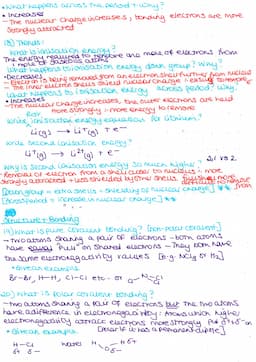 • What happens across the period + why?
• Increases
- The nuclear charge increases, bonding electrons are more strongly attracted
Trends:
What is ionisation energy?
The energy required to remove one mole of electrons from
1 mole of gaseous atoms
What happens to ionisation energy down group? Why?
• Decreases
- Electron is being removed from an electron shell further from nucleus
- The inner electron shells shield nuclear charge : easier to remove
What happens to ionisation energy across period? why?
• Increases
- The nuclear charge increases, the outer electrons are held
more strongly - more energy to remove
Write ionisation energy equation for lithium?
Li(g) → Li⁺(g) + e⁻
Write second ionisation energy?
Li⁺(g) → Li²⁺(g) + e⁻
Why is second ionisation energy so much higher?
- Removal of electron from a shell closer to nucleus : more
strongly attracted - less shielded by other shells.
[Down group = extra shells = shielding of nuclear charge]
[Across period = increase in nuclear charge]
Structure + Bonding
19) What is pure covalent bonding? [non-polar covalent]
- two atoms sharing a pair of electrons - both atoms
have equal "pull" on shared electrons - They both have
the same electronegativity values [e.g. NCl₃ or H₂]
• Give an example
Br-Br, H-H, Cl-Cl etc - or
20) What is polar covalent bonding?
- two atoms sharing a pair of electrons but the two atoms
have a difference in electronegativity : atoms which higher
electronegativity attract electrons more strongly
• Give an example
H-Cl
δ+ δ-
water H H δ+
O δ-